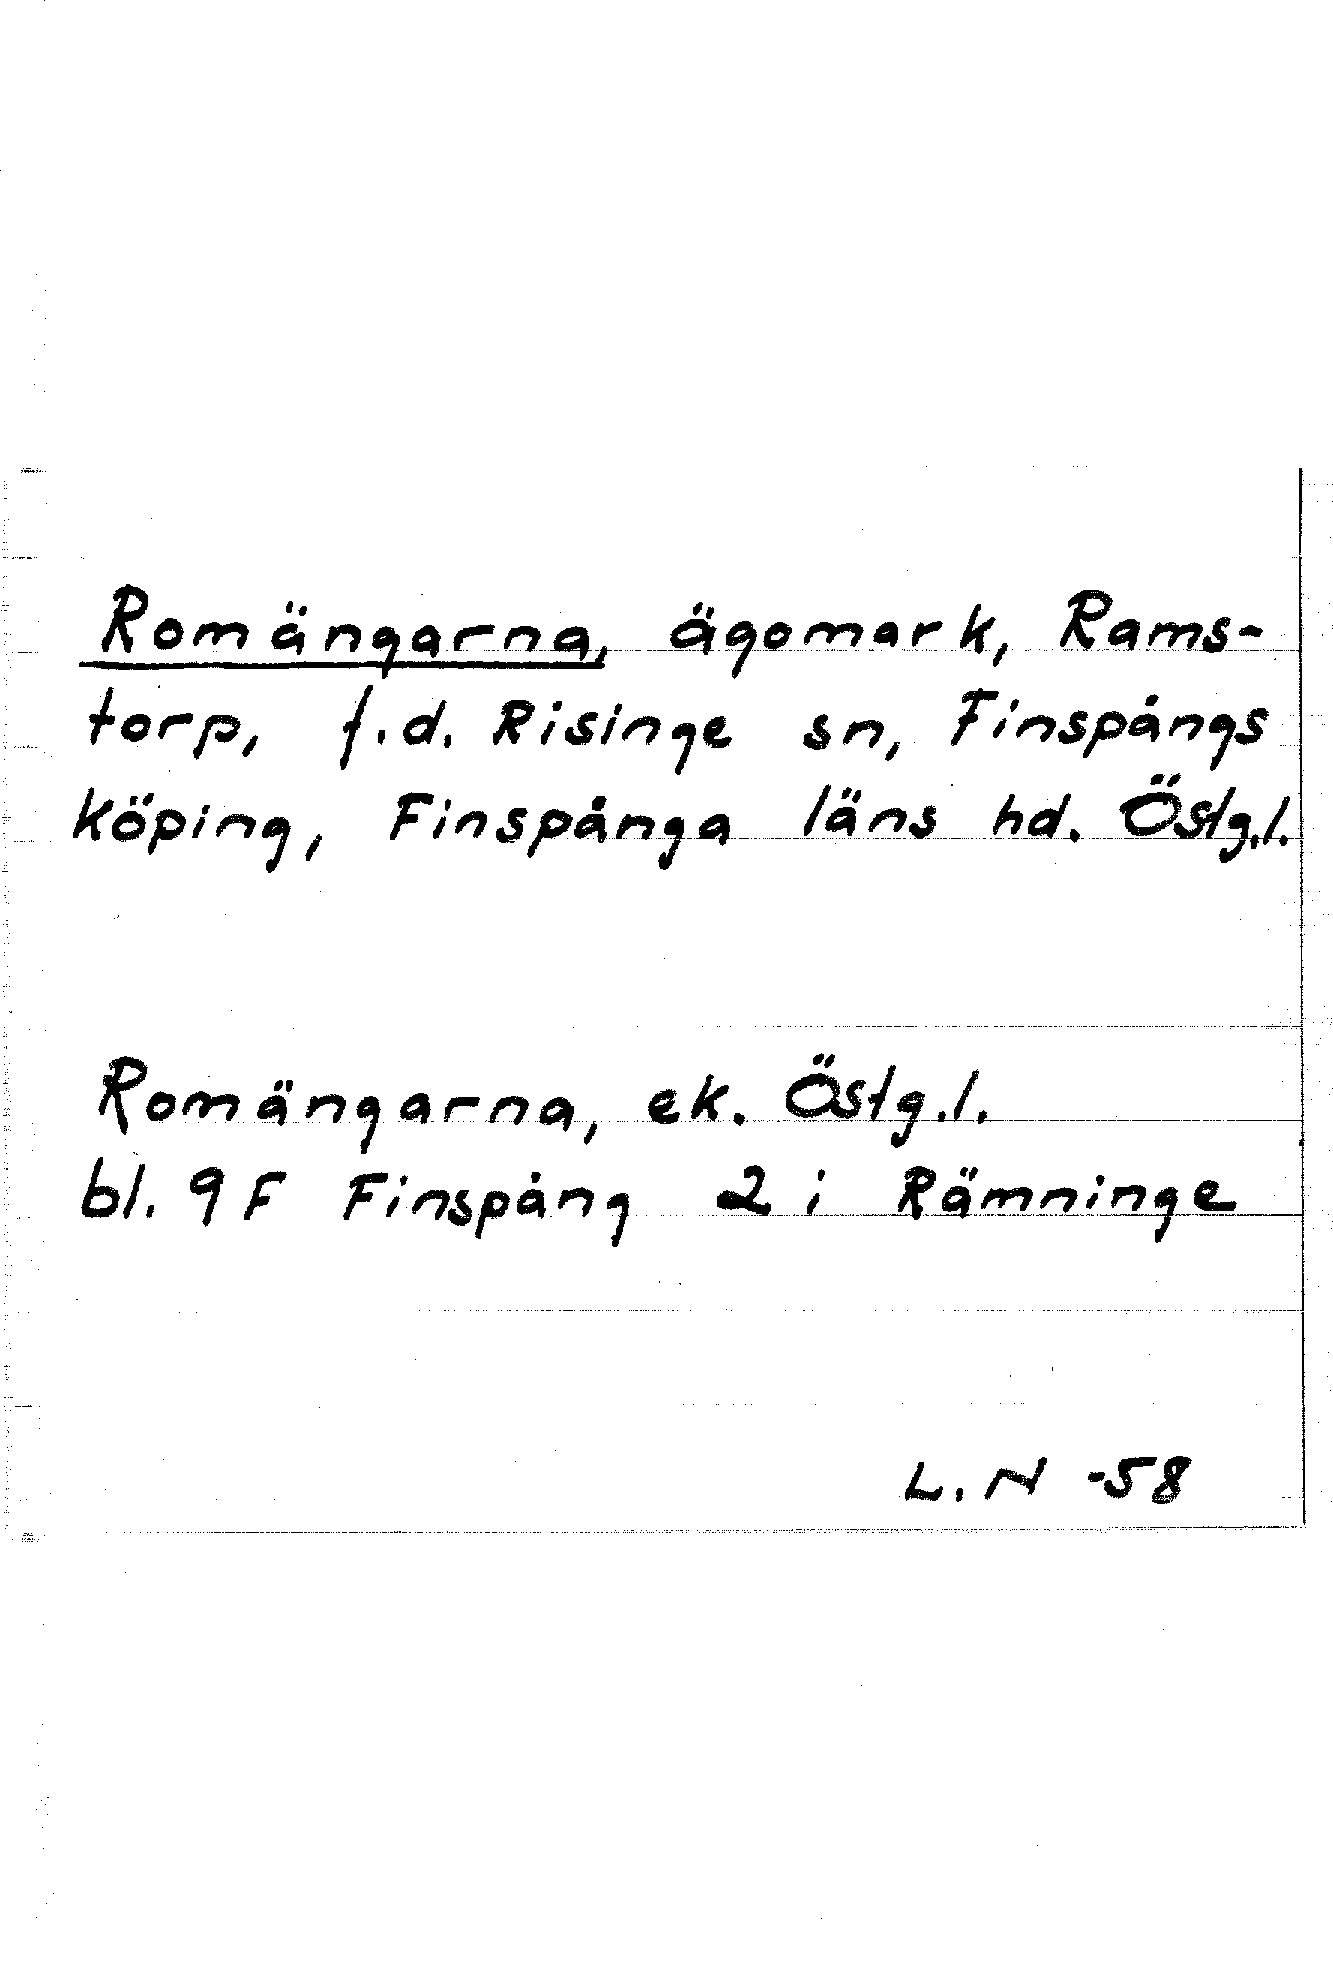 Romängarna, ägomark, Rams-
torp, f.d. Risinge sn, Finspångs
köping, Finspånga läns hd. Östg.l.
Romängarna, ek. Östg.l.
bl. 9 F Finspång 2 i Rämninge
L. N -58